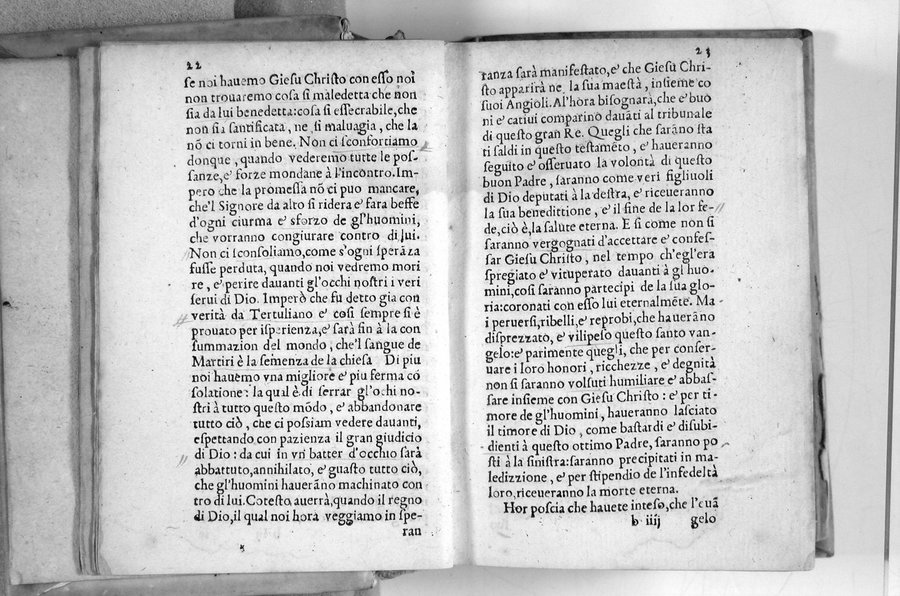 22
se noi hauemo Giesu Christo con esso noi
non trouaremo cosa si maledetta che non
sia da lui benedetta:cosa si essecrabile,che
non si a santificata, ne si maluagia, che la
nõ ci torni in bene. Non ci sconfortiamo
donque, quando vederemo tutte le pos-
sanze,e' forze mondane à l'incontro.Im-
pero che la promessa nõ ci puo mancare,
che'l Signore da alto si ridera e' fara beffe
d'ogni ciurma e' sforzo de gl'huomini,
che vorranno congiurare contro di lui.
Non ci sconsoliamo,come s'ogni sperãza
fusse perduta, quando noi vedremo mori
re, e' perire dauanti gl'occhi nostri i veri
serui di Dio. Imperò che fu detto gia con
verità da Tertuliano e' cosi sempre si è
prouato per isperienza,e' sarà fin à la con
summazion del mondo, che'l sangue de
Martiri è la semenza de la chiesa Di piu
noi hauemo vna migliore e' piu ferma cõ
solatione: la qual è di serrar gl'ochi no-
stri à tutto questo mõdo, e' abbandonare
tutto ciò, che ci possiam vedere dauanti,
espettando con pazienza il gran giudicio
di Dio: da cui in vn batter d'occhio sarà
abbattuto,annihilato, e' guasto tutto ciò,
che gl'huomini hauerãno machinato con
tro di lui.Cotesto auerrà,quando il regno
di Dio,il qual noi hora veggiamo in spe-
ran
23
ranza sarà manifestato,e' che Giesu Chri-
sto apparirà ne la sua maestà, insieme co
suoi Angioli. Al'hora bisognarà,che e' buo
ni e' catiui comparino dauãti al tribunale
di questo gran Re. Quegli che sarãno sta
ti saldi in questo testamẽto, e' haueranno
seguito e' osseruato la volontà di questo
buon Padre, saranno come veri figliuoli
di Dio deputati à la destra, e' riceueranno
la sua benedittione, e' il fine de la lor fe-
de,ciò è,la salute eterna. E si come non si
saranno vergognati d'accettare e' confes-
sar Giesu Christo, nel tempo ch'egl'era
spregiato e' vituperato dauanti à gl huo-
mini,cosi saranno partecipi de la sua glo-
ria:coronati con esso lui eternalmẽte. Ma
i peruersi,ribelli,e' reprobi,che hauerãno
disprezzato, e' vilipeso questo santo van-
gelo:e' parimente quegli, che per conser-
uare i loro honori, ricchezze, e' degnità
non si saranno volsuti humiliare e' abbas-
sare insieme con Giesu Christo: e' per ti-
more de gl'huomini, haueranno lasciato
il timore di Dio, come bastardi e' disubi-
dienti à questo ottimo Padre, saranno po
sti à la sinistra:saranno precipitati in ma-
ledizzione, e' per stipendio de l'infedeltà
loro,riceueranno la morte eterna.
Hor poscia che hauete inteso,che l'euã
b iiij gelo